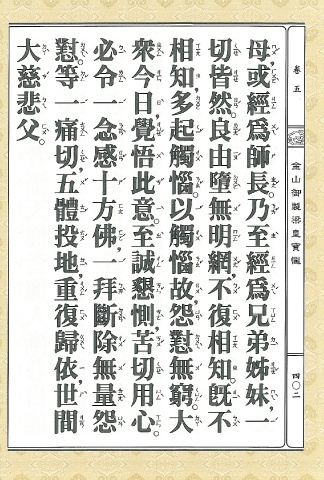 卷五
金山御製梁皇寶懺
四〇二
母。或經為師長。乃至經為兄弟姊妹。一
切皆然。良由墮無明網。不復相知。既不
相知。多起觸惱。以觸惱故。怨對無窮。大
眾今日。覺悟此意。至誠懇惻。苦切用心。
必令一念感十方佛。一拜斷除無量怨
對。等一痛切。五體投地。重復歸依。世間
大慈悲父。